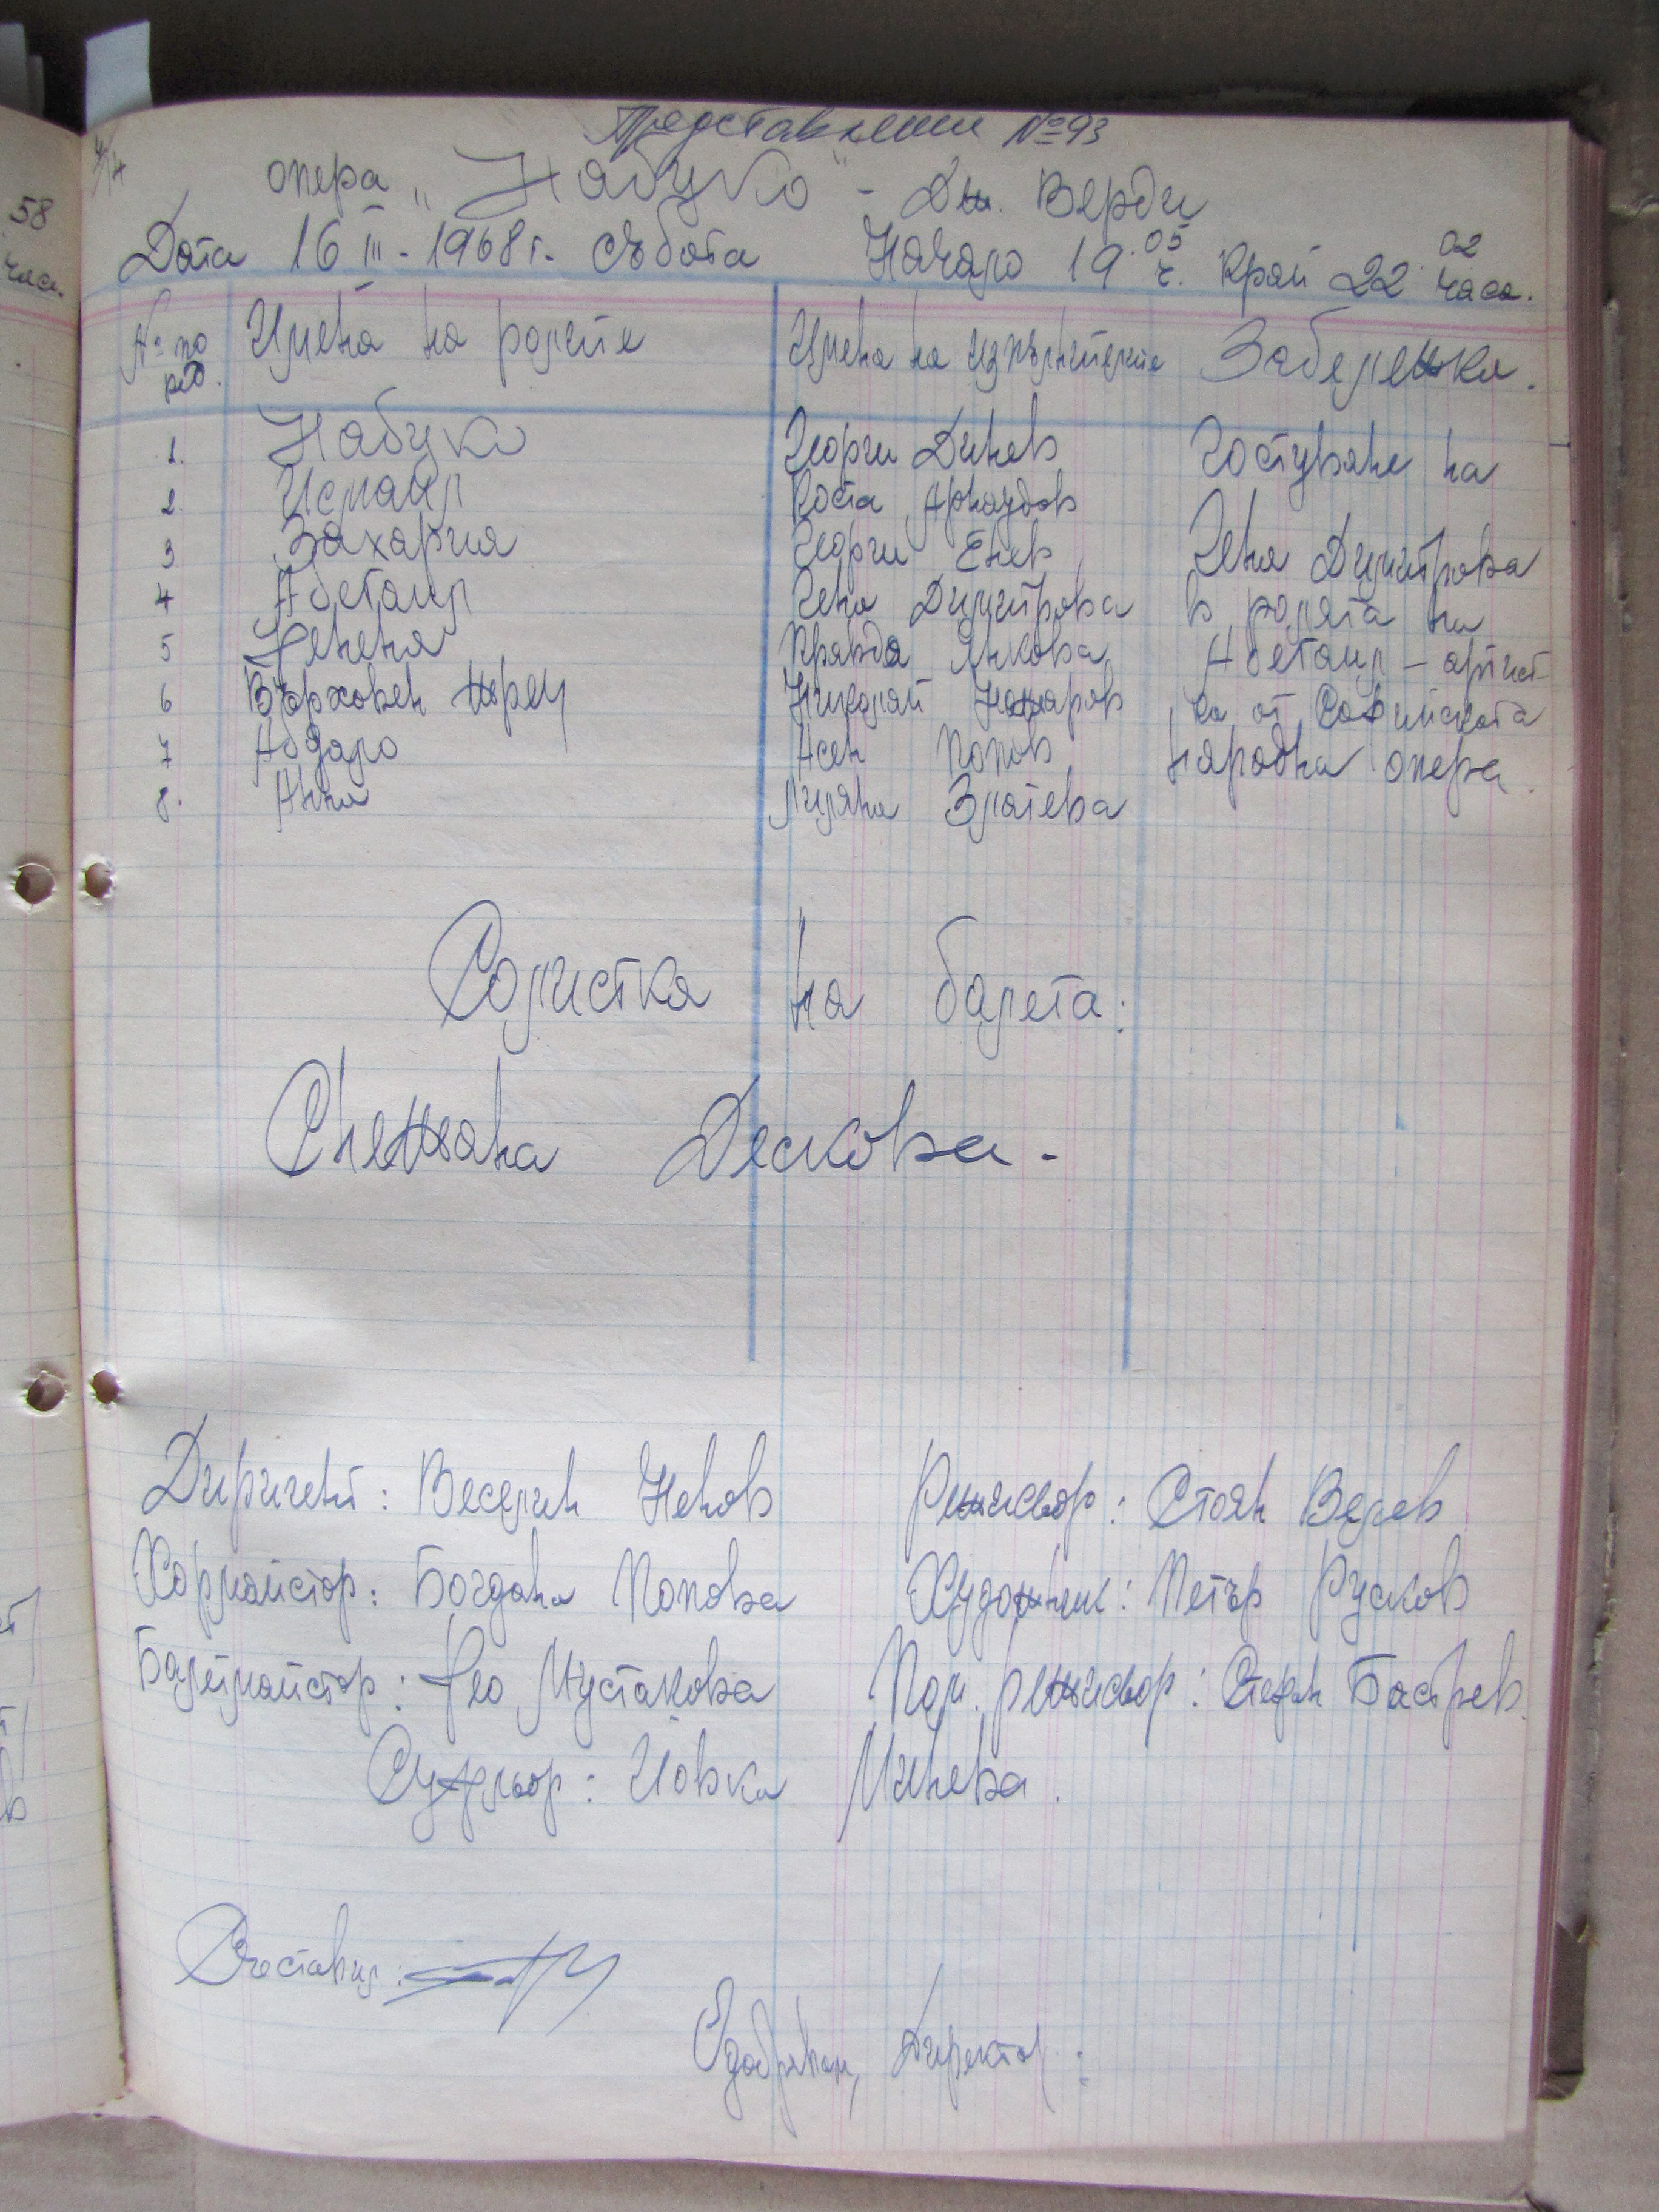 Представление №93
опера „Набуко" - Дж. Верди
Дата 16 III - 1968 г. събота Начало 19 05 ч. Край 22 02 часа.
№ по ред. Имена на ролите Имена на изпълнителите Забележка.
1. Набуко Георги Динев Гостуване на
2. Исмаил Коста Арнаудов
3 Захария Георги Енев Гена Димитрова
4 Абегаил Гена Димитрова в ролята на
5 Фенена Правда Янкова Абегаил - артист
6 Върховен жрец Николай Кожаров ка от Софийската
7 Абдало Асен Попов народна опера.
8. Анна Лиляна Златева
Солистка на балета:
Снежана Дескова -
Диригент: Веселин Ненов Режисьор: Стоян Велев
Хормайстор: Богдана Попова Художник: Петър Русков
Балетмайстор: Фео Мустакова Пом. режисьор: Стефан Бастрев.
Суфльор: Йовка Минева.
Съставил:
Одобрявам, Директор:
58
часа.